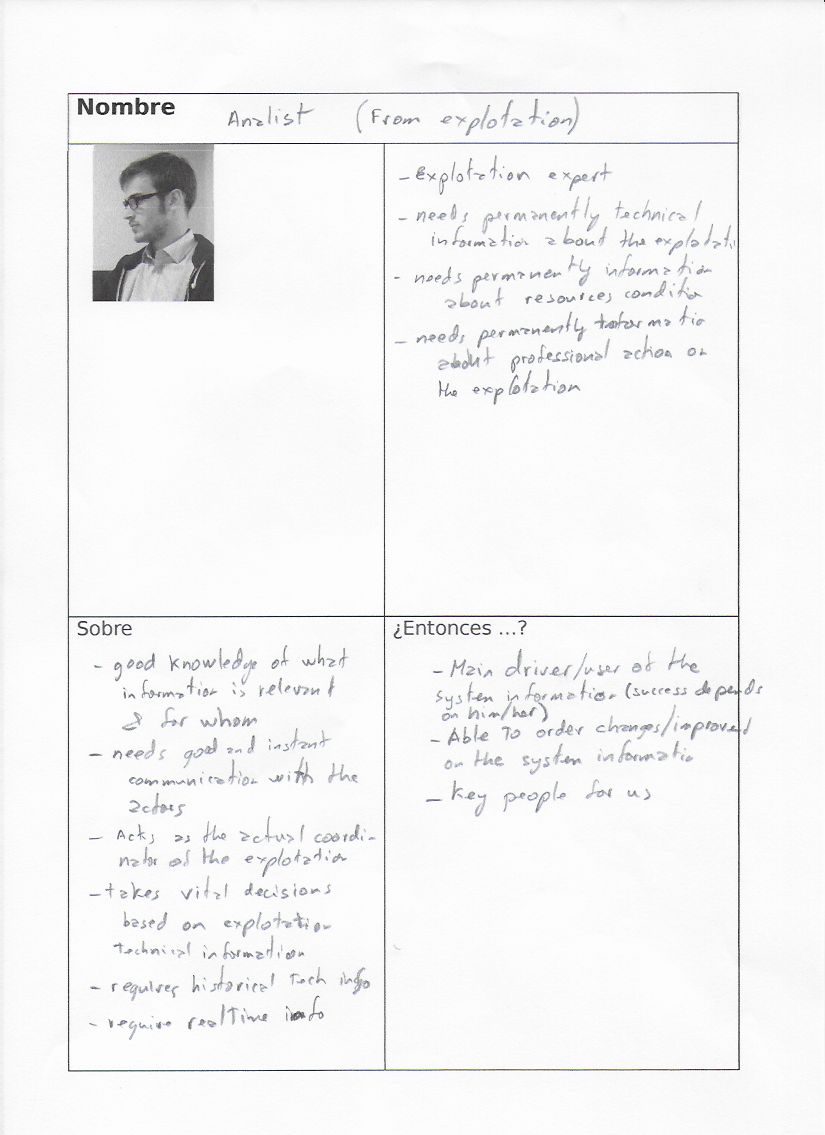 Nombre Analist (From explotation)
- Explotation expert
- needs permanently technical
information about the explotati
- needs permanently information
about resources conditio
- needs permanently informatio
about professional action on
the explotation
Sobre
- good knowledge of what
information is relevant
& for whom
- needs good and instant
communication with the
actors
- Acts as the actual coordi-
nator of the explotation
- takes vital decisions
based on explotation
technical information
- requires historical tech info
- require realtime info
¿Entonces ...?
- Main driver/user of the
system information (success depends
on him/her)
- Able to order changes/improved
on the system informatio
- Key people for us